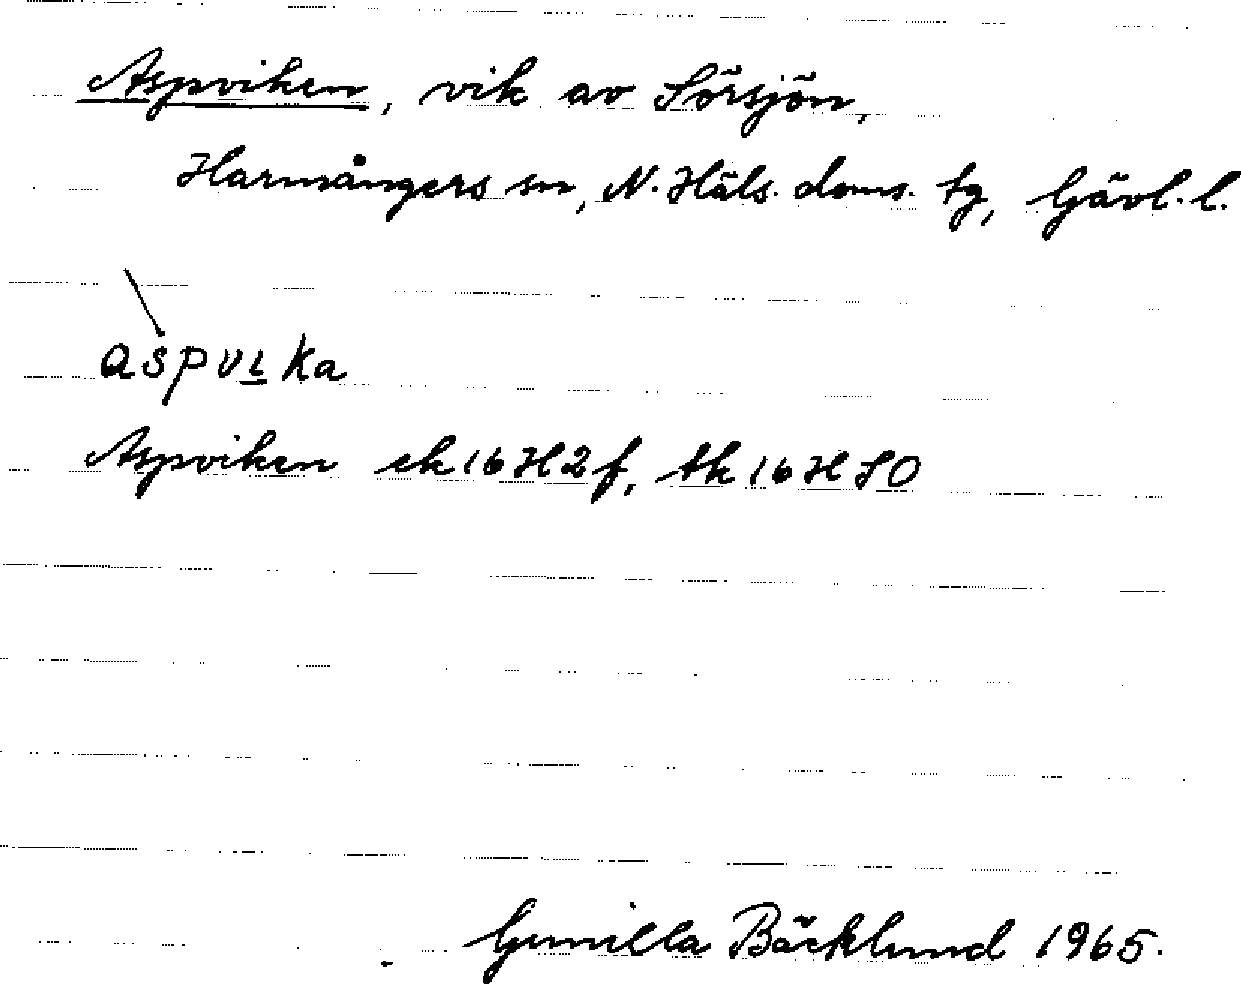 Aspviken, vik av Sörsjön,
Harmångers sn, N. Häls. doms. tg, Gävl. l.
aspvıka
Aspviken ek 16H2f, tk 16H SO
Gunilla Bäcklund 1965.